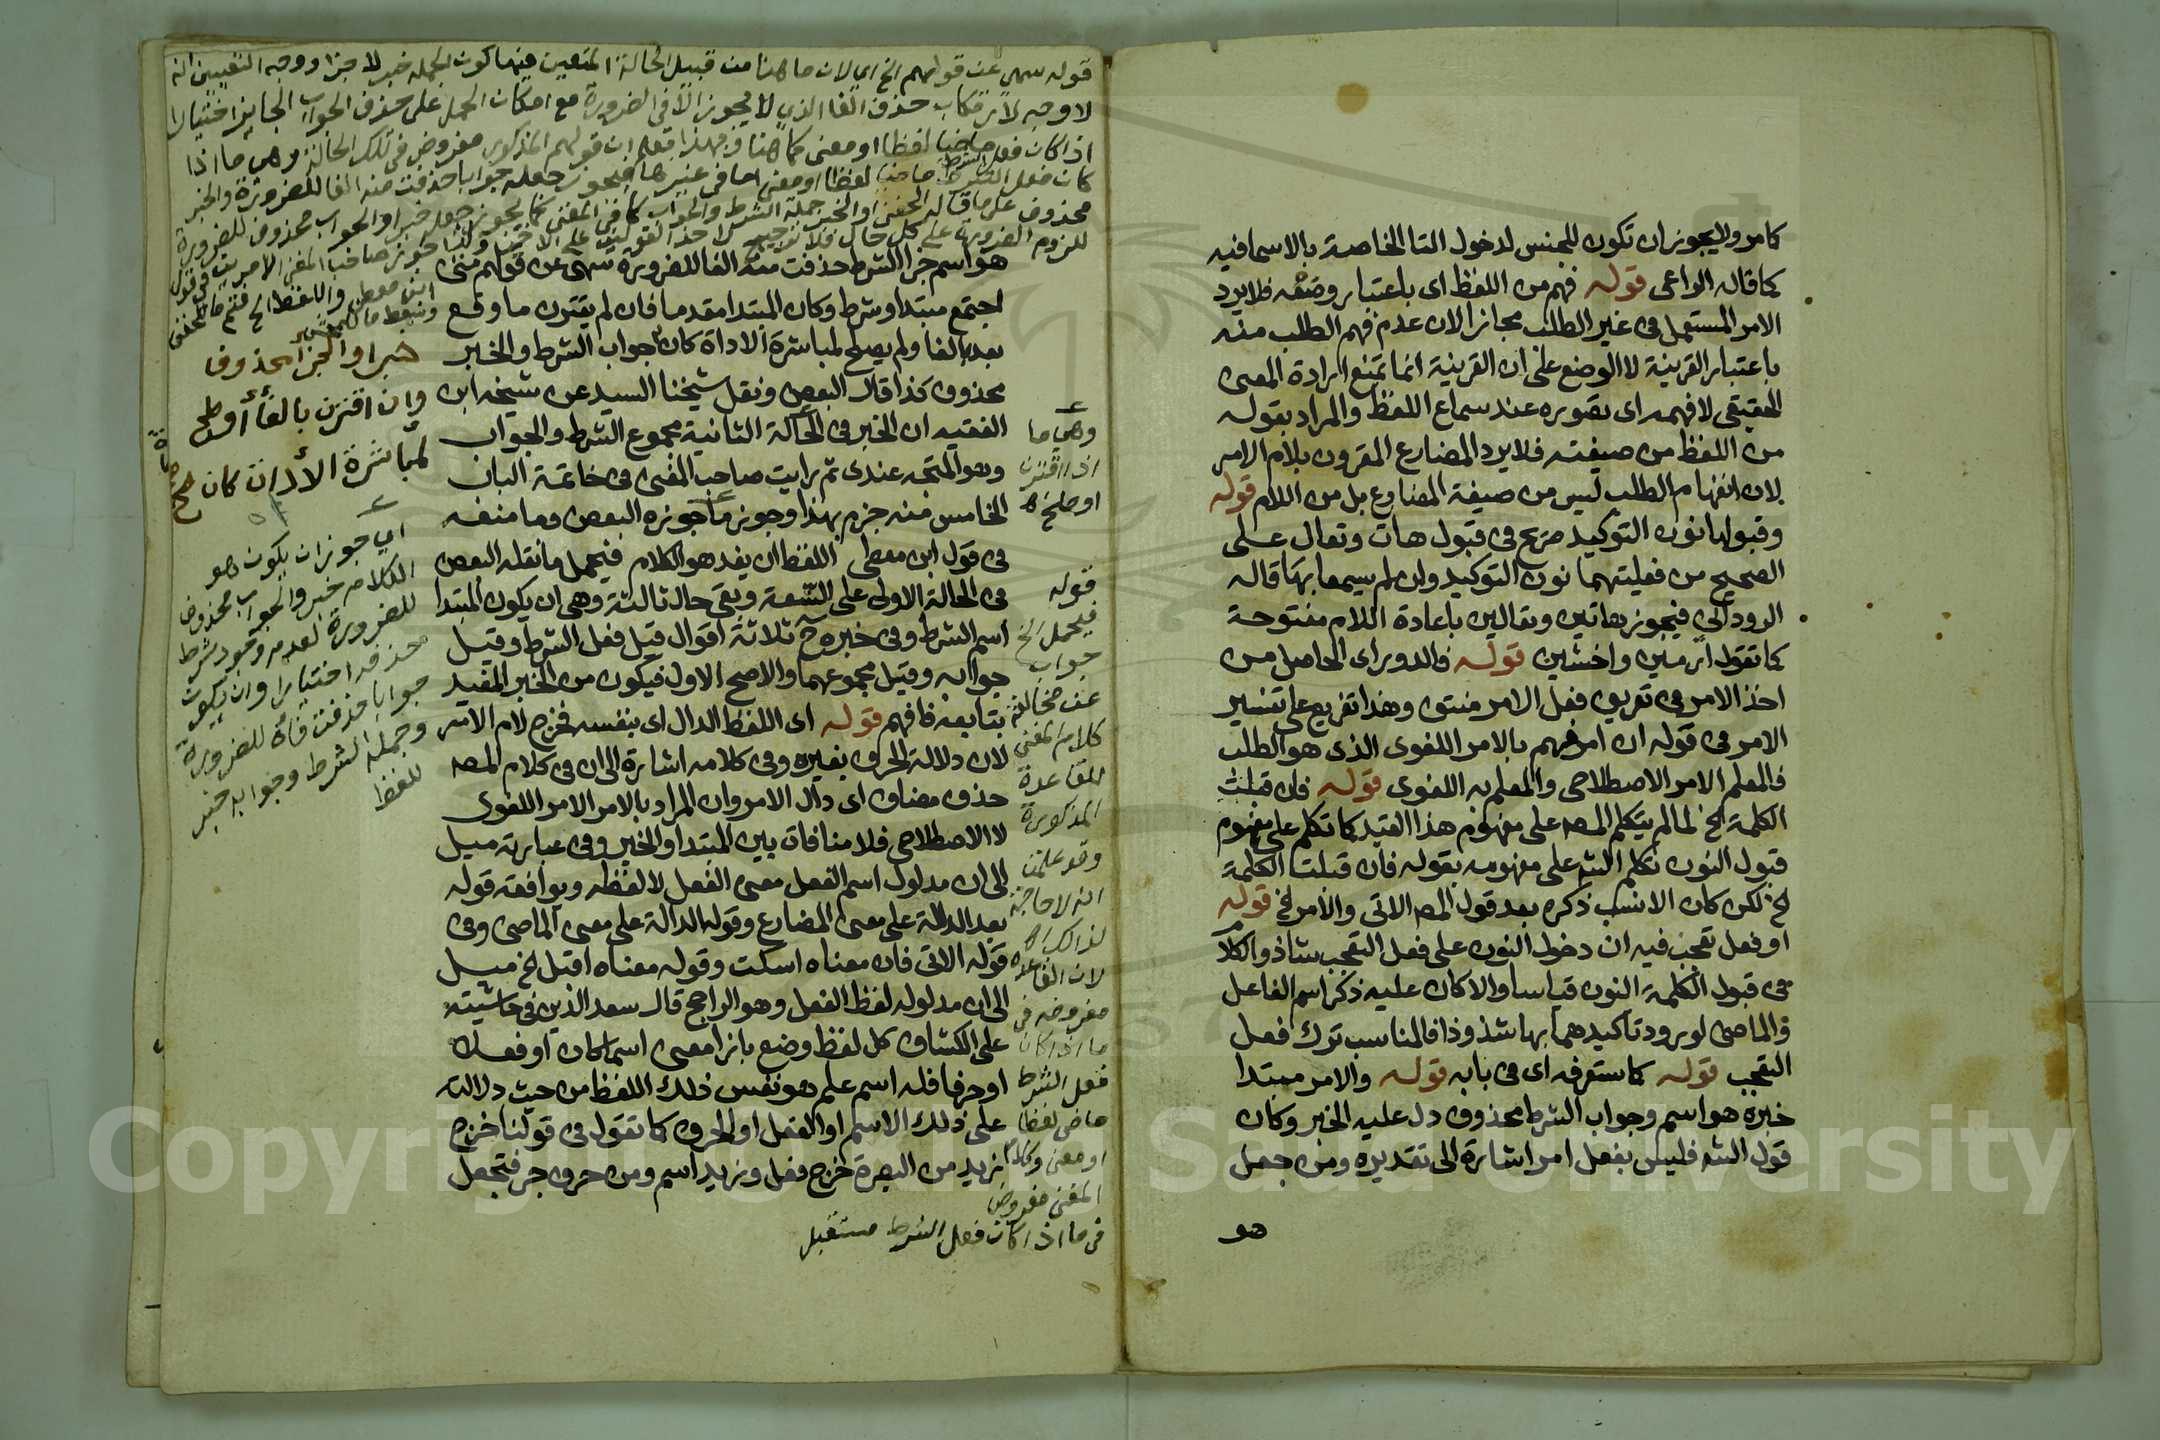 كامر ولا يجوز ان تكون للجنس لدخول التا الخاصة بالاسما فيه
كما قاله الراعى قوله فهم من اللفظ اى باعتبار وضعه فلا يرد
الامر المستعمل فى غير الطلب مجازا لان عدم فهم الطلب منه
باعتبار القرينة لا الوضع على ان القرينة انما تمنع ارادة المعنى
الحقيقى لا فهمه اى تصوره عند سماع اللفظ والمراد بقوله
من اللفظ من صيغته فلا يرد المضارع المقرون بلام الامر
لان انفهام الطلب ليس من صيغة المضارع بل من اللام قوله
وقبولها نون التوكيد صريح فى قبول هات وتعال على
الصحيح من فعليتهما نون التوكيد وان لم يسمعا بها قاله
الرودانى فيجوز هاتين وتعالين باعادة اللام مفتوحة
كما تقول ارمين واخشين قوله فالدور اى الحاصل من
اخذ الامر فى تعريف فعل الامر منتف وهذا تفريع على تفسير
الامر فى قوله ان امر فهم بالامر اللغوى الذى هو الطلب
فالمعلم الامر الاصطلاحى والمعلم به اللغوى قوله فان قبلت
الكلمة الخ لما لم يتكلم المصه على مفهوم هذا القيد كما تكلم على مفهوم
قبول النون تكلم الشه على مفهومه بقوله فان قبلت الكلمة
لخ لكن كان الانسب ذكره بعد قول المصه الاتى والامر لخ قوله
او فعل تعجب فيه ان دخول النون على فعل التعجب شاذ والكلام
فى قبول الكلمة النون قياسا والا كان عليه ذكر اسم الفاعل
والماضى لورود تاكيدهما بها شذوذا فالمناسب ترك فعل
التعجب قوله كما ستعرفه اى فى بابه قوله والامر مبتدا
خبره هو اسم وجواب الشرط محذوف دل عليه الخبر وكان
قول الشه فليس بفعل امر اشارة الى تقديره ومن جعل
هو
قوله سهى عن قولهم الخ اى لان ما هنا من قبيل الحالة المتعين فيها كون الجملة خبر لا جزا ووجه التعيين انه
لا وجه لارتكاب حذف الفا الذى لا يجوز الا فى الضرورة مع امكان الحمل على حذف الجواب الجايز اختيارا
اذا كان فعل ماضيا لفظا او معنى كما هنا وبهذا تعلم ان قولهم المذكور مفروض فى تلك الحالة وهى ما اذا
كان فعل الشرط ماضيا لفظا او معنى اما فى غيرها فيجوز جعله جوابا حذفت منه الفا للضرورة والخبر
هو اسم جزا الشرط حذفت منه الفا للضرورة سهى عن قولهم متى
اجتمع مبتدا وشرط وكان المبتدا مقدما فان لم يقترن ما وقع
بعد بالفا ولم يصلح لمباشرة الاداة كان جواب الشرط والخبر
محذوف كذا قال البعض ونقل شيخنا السيد عن شيخه ابن
الفقيه ان الخبر فى الحالة الثانية مجموع الشرط والجواب
وهو المتجه عندى ثم رايت صاحب المغنى فى خاتمة الباب
الخامس منه جزم بهذا وجوز ما جوزه البعض وما منعه
فى قول ابن معطى اللفظ ان يفد هو الكلام فيحمل ما نقله البعض
فى الحالة الاولى على السعة وبقى حال ثالثة وهى ان يكون المبتدا
اسم الشرط وفى خبره ح ثلاثة اقوال قيل فعل الشرط وقيل
جوابه وقيل مجموعهما والاصح الاول فيكون من الخبر المقيد
بتابعه فافهم قوله اى اللفظ الدال اى بنفسه فخرج لام الامر
لان دلالة الحرف بغيره وفى كلامه اشارة الى ان فى كلام المصه
حذف مضاف اى دال الامر وان المراد بالامر الامر اللغوى
لا الاصطلاحى فلا منافاة بين المبتدا والخبر وفى عبارته ميل
الى ان مدلول اسم الفعل معنى الفعل لا لفظه ويوافقه قوله
بعد الدالة على معنى المضارع وقوله الدالة على معنى الماضى وفى
قوله الاتى فان معناه اسكت وقوله معناه اقبل لخ ميل
الى ان مدلوله لفظ الفعل وهو الراجح قال سعد الدين فى حاشيته
على الكشاف كل لفظ وضع بازا معنى اسما كان او فعلا
او حرفا فله اسم علم هو نفس ذلك اللفظ من حيث دلالته
على ذلك الاسم او الفعل او الحرف كما تقول فى قولنا خرج
زيد من البصرة خرج فعل وزيد اسم ومن حرف جر فتجعل
خبرا والجزا محذوفا
وان اقترن بالفا او صلح
لمباشرة الأداة كان صح
اى جوز ان يكون هو
الكلام خبر والجواب محذوف
للضرورة لعدم وجود شرط
حذفه اختيارا وان يكون
جوابا حذفت فاؤه للضرورة
وجملة الشرط وجوابه خبر
للفظ
وهى ما
اذا اقترن
او صلح ه
قوله
فيحمل الخ
جواب
عن مخالفة
كلام المغنى
للقاعدة
المذكورة
وقد علمت
انه لا حاجة
لذلك
لان القاعدة
مفروضه فى
ما اذا كان
فعل الشرط
ماضى لفظا
او معنى وكلام
المغنى مفروض
فى ما اذا كان فعل الشرط مستقبل
Copyright © King Saud University